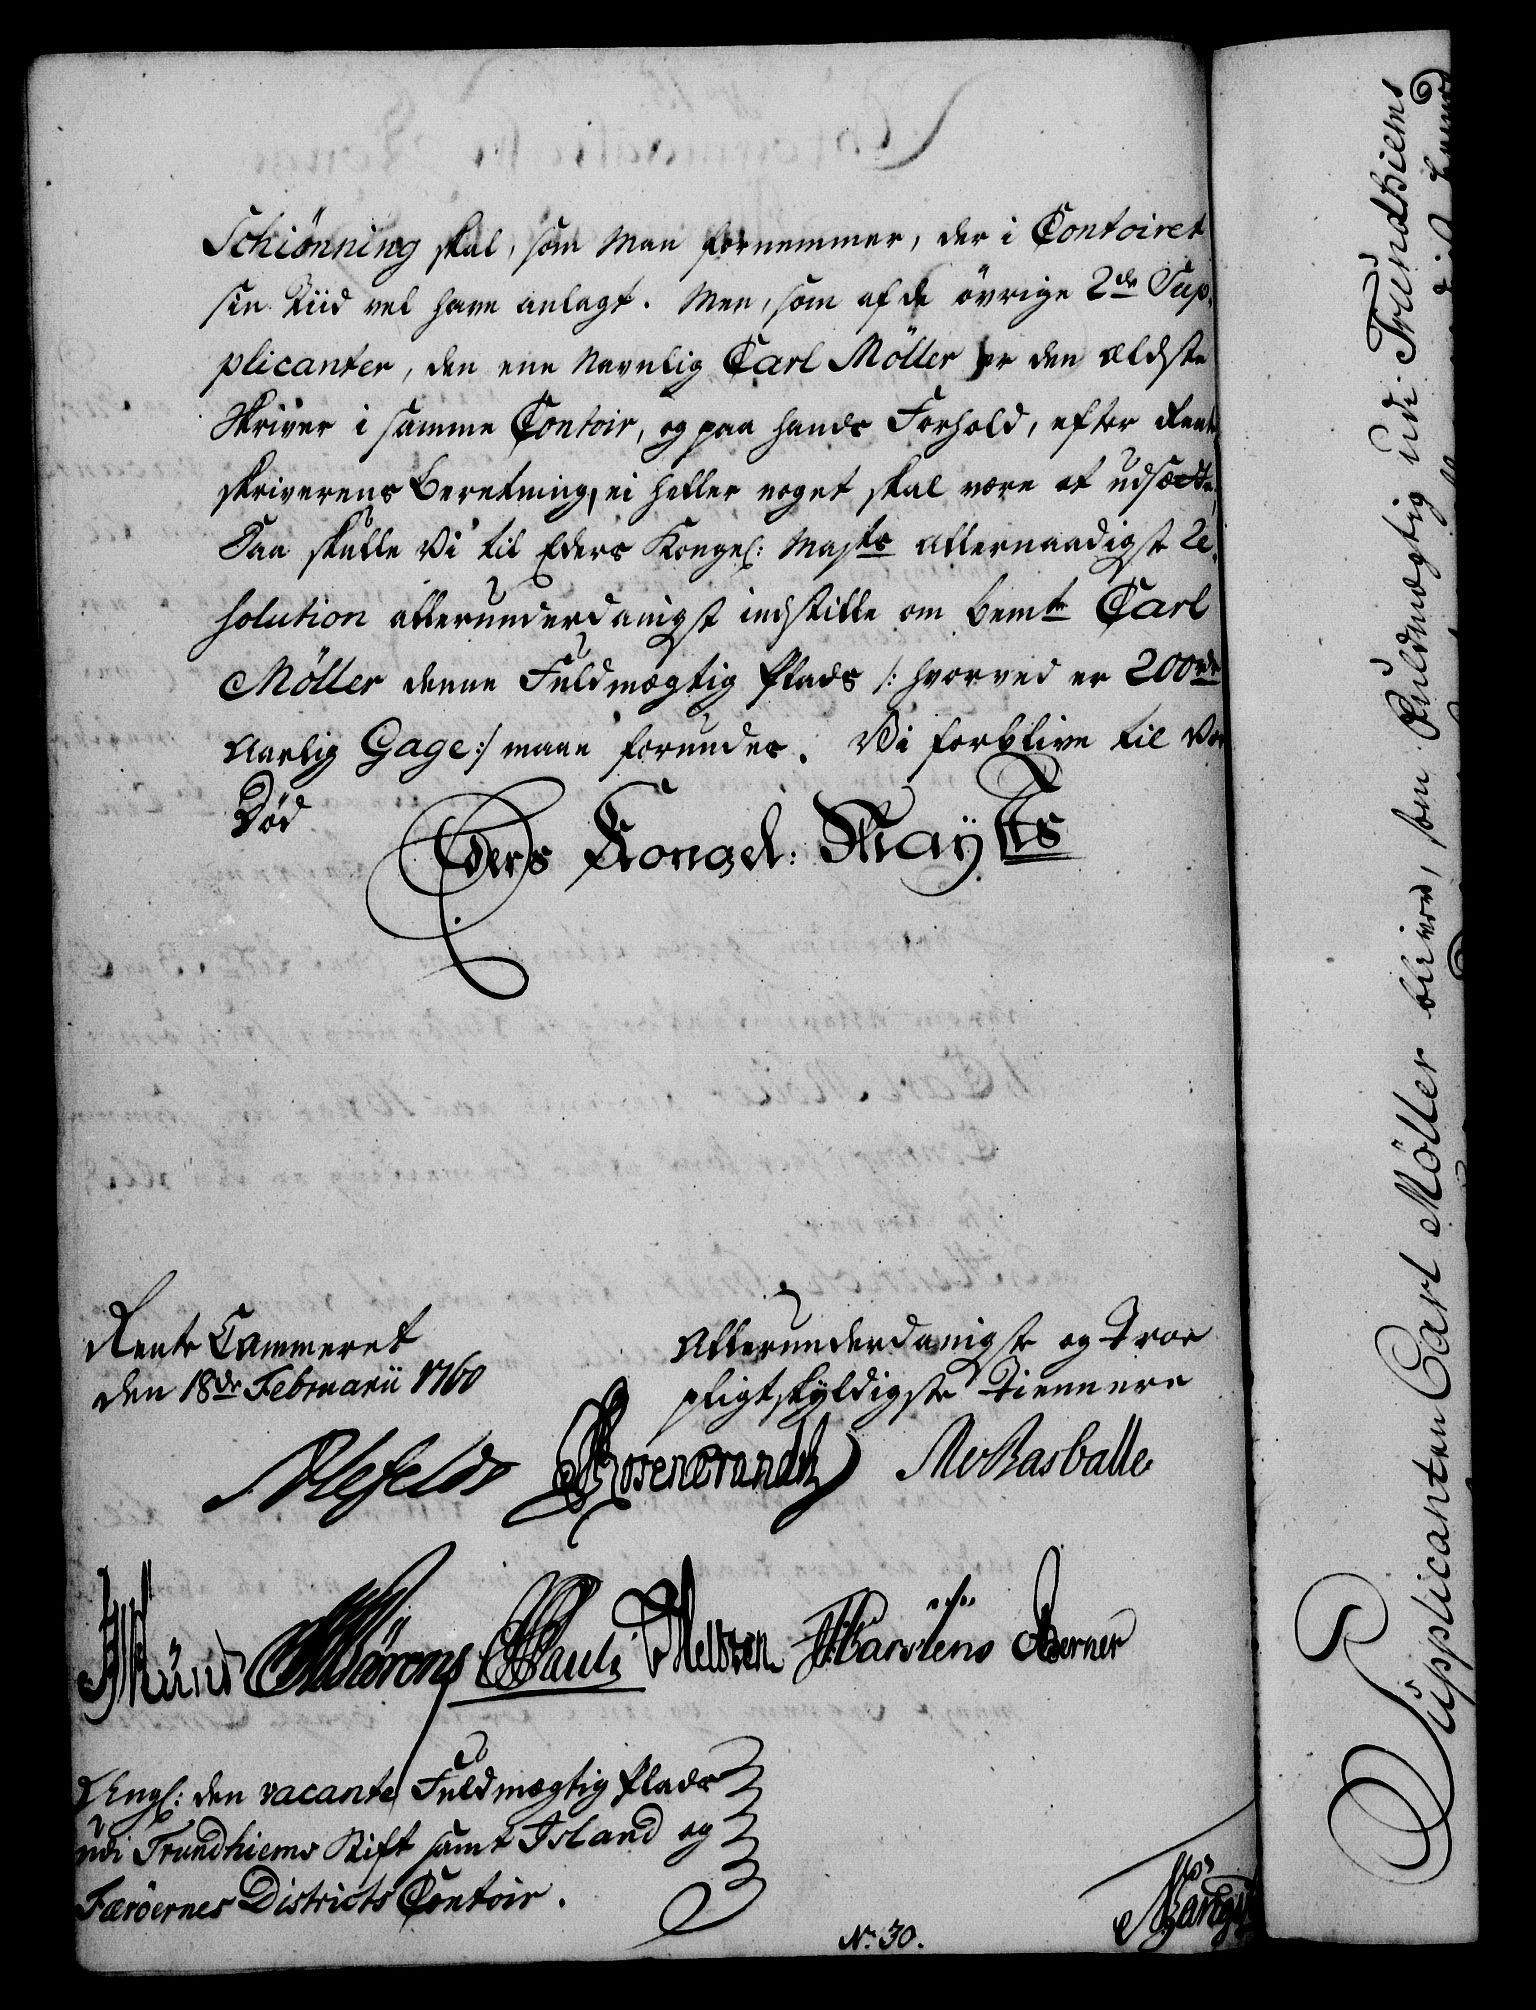 Schiønning skal, som man fornemmer, der i Contoiret
sin Tiid vel have anlagt. Men, som af de øvrige 2de Sup-
plicanter, den ene navnlig Carl Möller er den ældste
Skriver i samme Contoir, og paa hands Forhold, efter Rente
skriverens Beretning, ei heller noget skal være at udsætte,
Saa skulle Vi til Eders Kongel: Majts allernaadigst Re-
solution allerunderdanigst indstille om bemte Carl
Möller denne Fuldmægtig Plads /: hvorved er 200 rdr
Aarlig Gage :/ maae forundes. Vi forblive til Vor
Død
Eders Kongel: Mayts
Rente Cammeret
den 18de Februarii 1760
Allerunderdanigste og Troe
pligtskyldigste Tiennere
Ahlefeldt Rosencrandtz Rasballe
Pauli Karstens Berner
Angl: den vacante Fuldmægtig Plads
udi Trundhiems Stift samt Island og
Færöernes Districts Contoir.
No. 30.
Supplicanten Carl Möller bliver, som Fuldmægtig udi Trundhiems